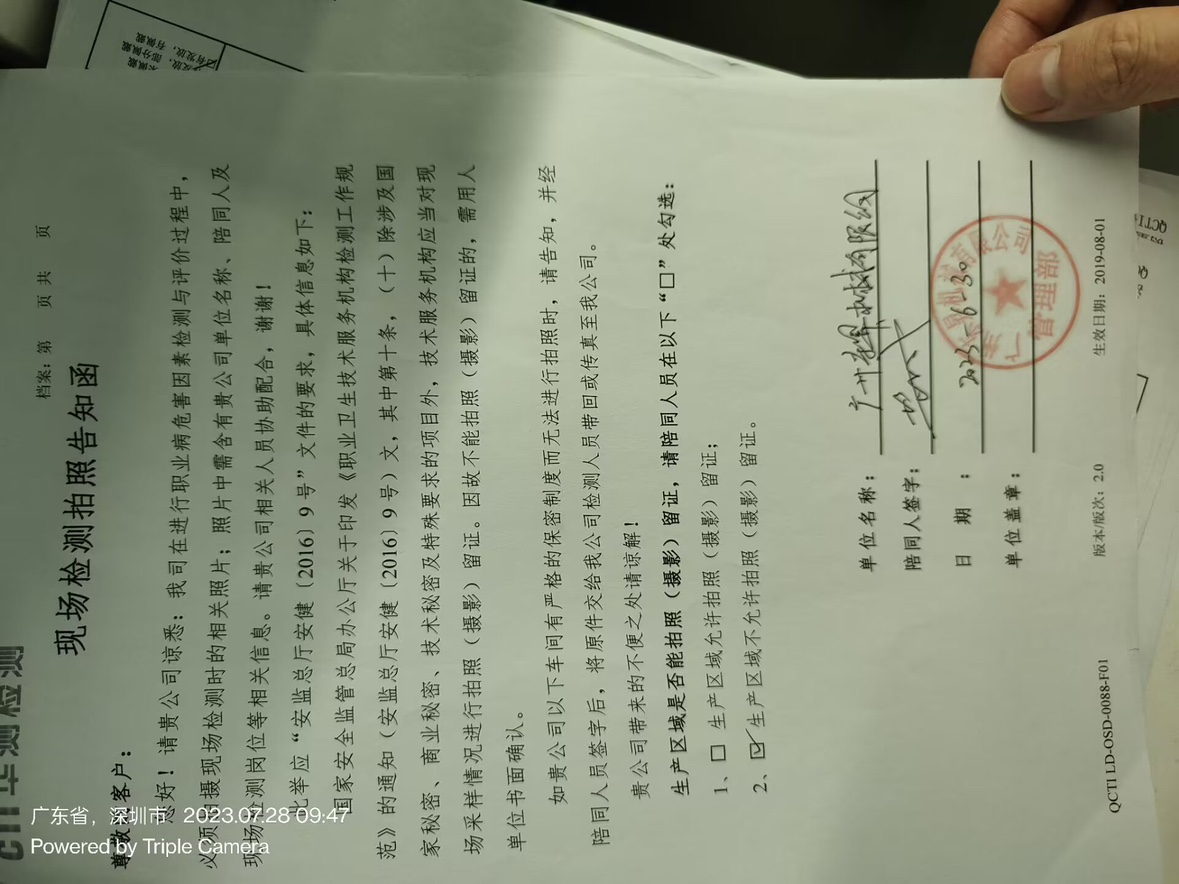 华测检测
档案:第 页 共 页
现场检测拍照告知函
尊敬的客户:
您好!请贵公司谅悉:我司在进行职业病危害因素检测与评价过程中,
必须拍摄现场检测时的相关照片;照片中需含有贵公司单位名称、陪同人及
现场检测岗位等相关信息。请贵公司相关人员协助配合,谢谢!
此举应“安监总厅安健〔2016〕9 号”文件的要求,具体信息如下:
国家安全监管总局办公厅关于印发《职业卫生技术服务机构检测工作规
范》的通知(安监总厅安健〔2016〕9 号)文,其中第十条,(十)除涉及国
家秘密、商业秘密、技术秘密及特殊要求的项目外,技术服务机构应当对现
场采样情况进行拍照(摄影)留证。因故不能拍照(摄影)留证的,需用人
单位书面确认。
如贵公司以下车间有严格的保密制度而无法进行拍照时,请告知,并经
陪同人员签字后,将原件交给我公司检测人员带回或传真至我公司。
贵公司带来的不便之处请谅解!
生产区域是否能拍照(摄影)留证,请陪同人员在以下“□”处勾选:
1、□ 生产区域允许拍照(摄影)留证;
2、☑ 生产区域不允许拍照(摄影)留证。
单位名称: 广州 机械有限公司
陪同人签字:
日 期 : 2023-6-30
单位盖章:
有限公司
管理部
QCTI LD-OSD-0088-F01 版本/版次:2.0 生效日期:2019-08-01
广东省,深圳市 2023.07.28 09:47
Powered by Triple Camera